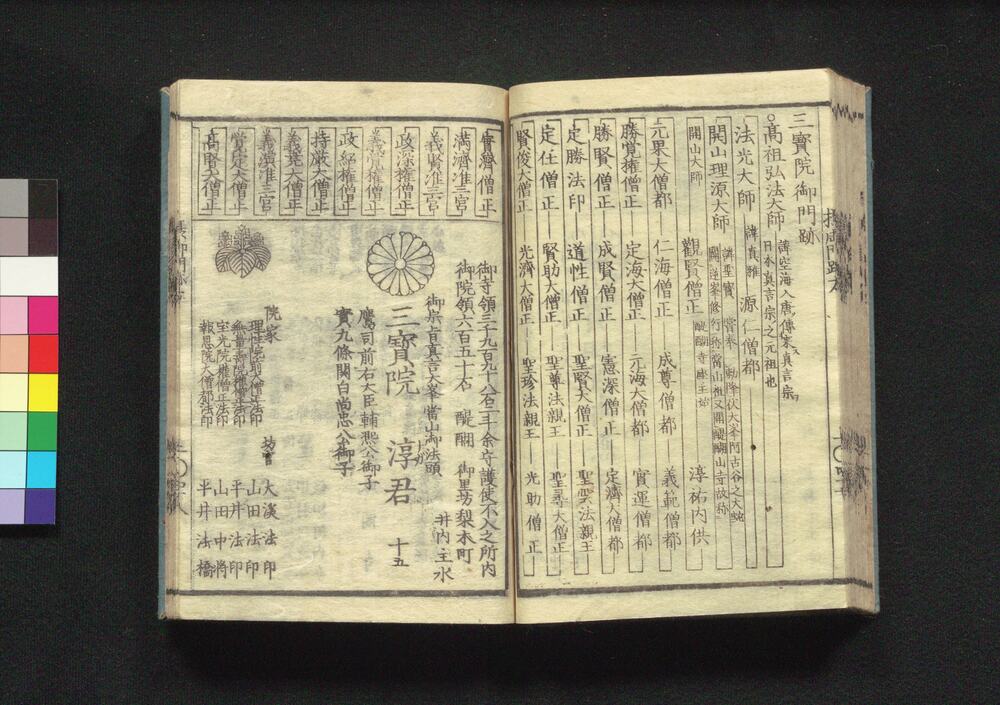 三寶院御門跡
高祖弘法大師
諱空海入唐傳来真言宗
日本真言宗之元祖也
法光大師
諱真雅
源仁僧都
開山理源大師
諱聖寳
開山大師
觀賢僧正
淳祐内供
元杲大僧都
仁海僧正
成尊僧都
義範僧都
勝覚權僧正
定海大僧正
元海大僧都
實運僧都
勝賢僧正
成賢僧正
憲深僧正
定濟大僧都
定勝法印
道性僧正
聖賢大僧正
聖雲法親王
定任僧正
賢助大僧正
聖尊法親王
聖尋大僧正
賢俊大僧正
光濟大僧正
聖珍法親王
光助僧正
實濟僧正
満濟准三宮
義賢准三宮
政深權僧正
義覚權僧正
政紹權僧正
持厳大僧正
義尭大僧正
義演准三宮
覚定大僧正
高賢大僧正
御寺領三千九百九十八石二斗余守護使不入之所内
御院領六百五十石 醍醐 御里坊梨本町
井内主水
御宗旨真言大峯當山御法頭
三寶院 淳君 十五
鷹司前右大臣輔熈公御子
實九條関白尚忠公御子
院家
理性院大僧正法印
無量壽院權僧正法印
宝光院權僧正法印
報恩院大僧都法印
坊官
大渓法印
山田法印
平井法印
山田中将
平井法橋